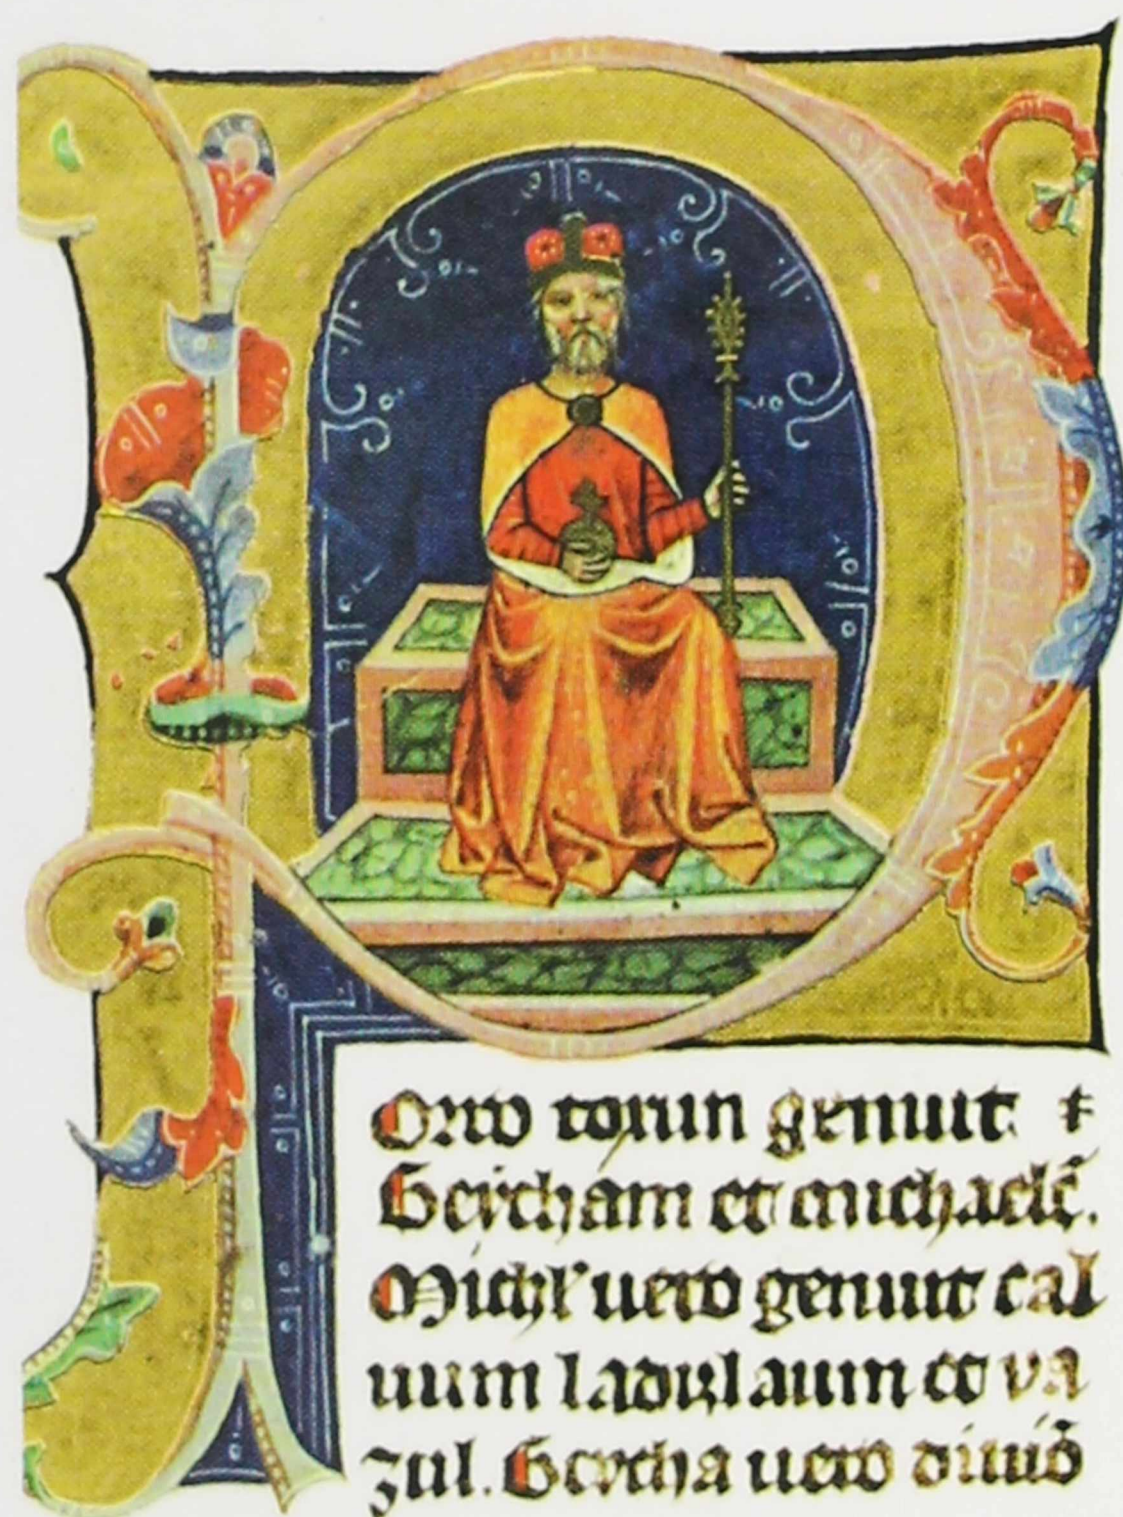 P
Orro toxun genuit ⁊
Geycham et michaelē.
Michl' uero genuit cal
uum ladizlaum et va
zul. Geycha uero diuiō